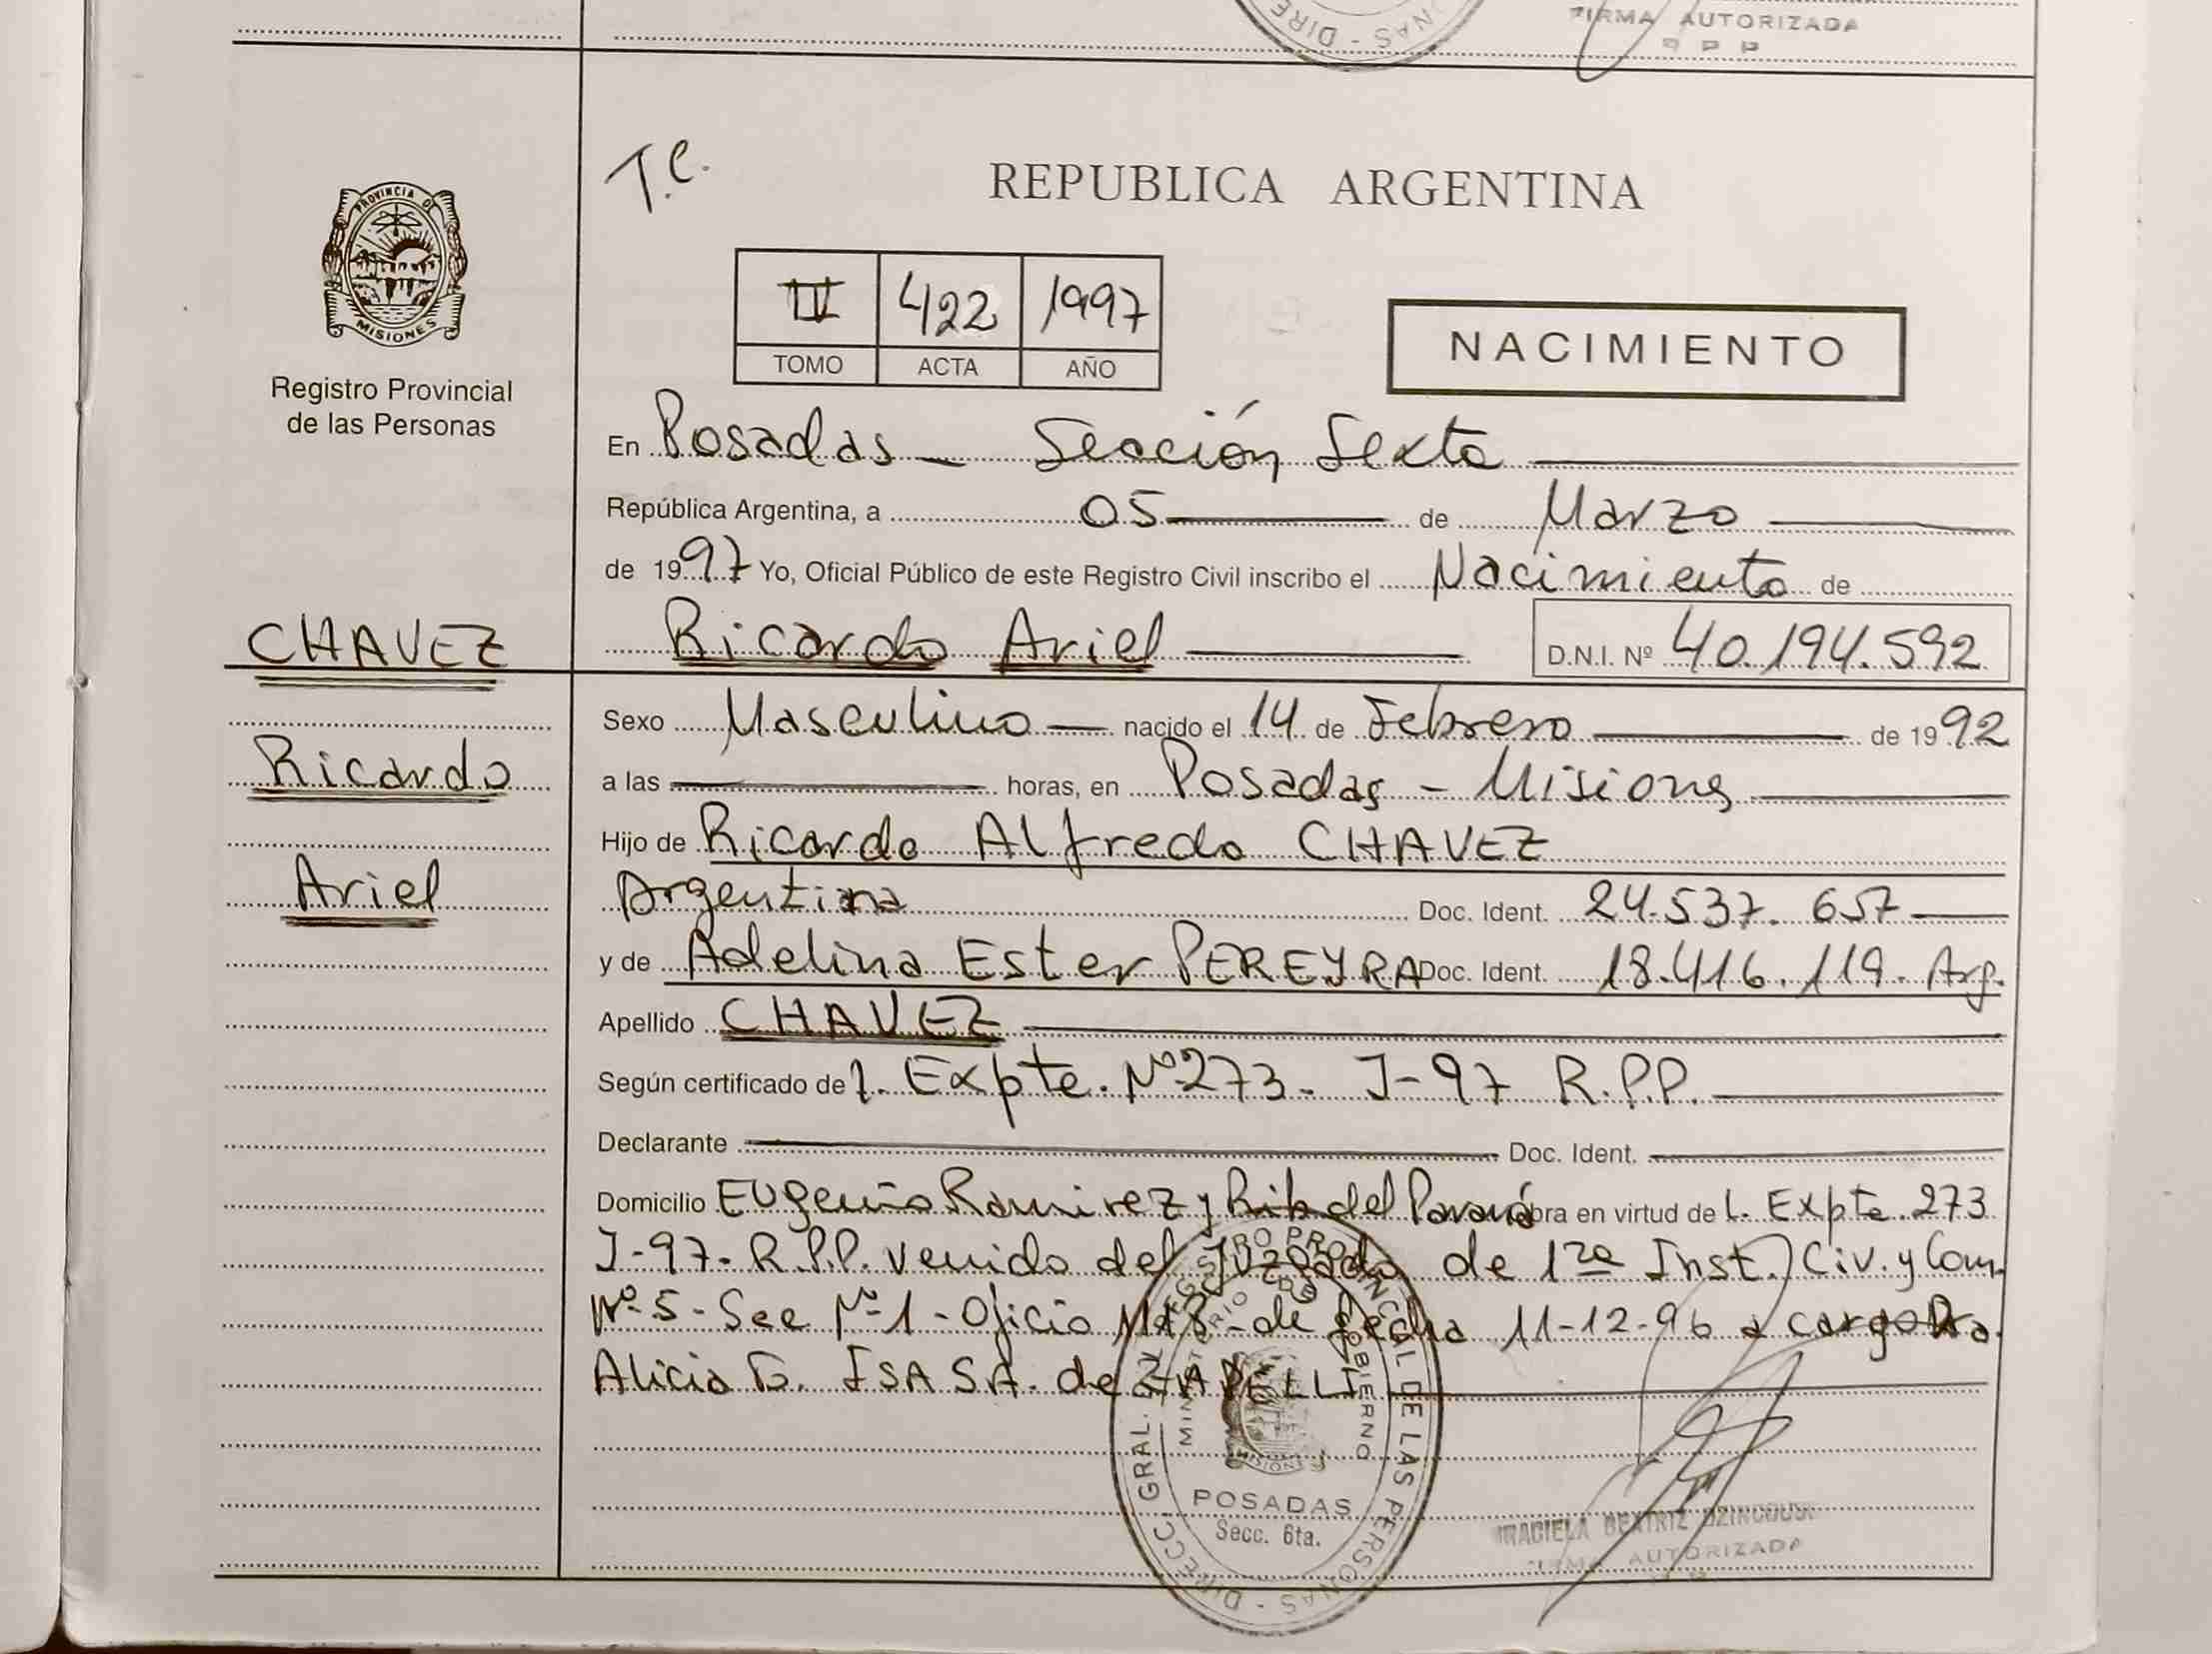 FIRMA AUTORIZADA
PROVINCIA DE
MISIONES
Registro Provincial
de las Personas
CHAVEZ
Ricardo
Ariel
T.C.
REPUBLICA ARGENTINA
IV 422 1997
TOMO ACTA AÑO
NACIMIENTO
En Posadas - Sección Sexta
República Argentina, a 05 de Marzo
de 1997 Yo, Oficial Público de este Registro Civil inscribo el Nacimiento de
Ricardo Ariel D.N.I. Nº 40.194.592
Sexo Masculino nacido el 14 de Febrero de 1992
a las horas, en Posadas - Misiones
Hijo de Ricardo Alfredo CHAVEZ
Argentina Doc. Ident. 24.537.657
y de Adelina Ester PEREYRA Doc. Ident. 18.416.119. Arg.
Apellido CHAVEZ
Según certificado de 1. Expte. Nº 273. J-97 R.P.P.
Declarante Doc. Ident.
Domicilio Eugenio Ramirez y Rib del Paraná obra en virtud de L. Expte. 273
J-97. R.P.P. venido del Juzgado de 1ra Inst. Civ. y Com.
Nº 5 - Sec Nº 1 - Oficio de fecha 11-12-96 a cargo Dra.
Alicia G. ISASA. de
DIRECC. GRAL. REGISTRO PROVINCIAL DE LAS PERSONAS
MINISTERIO DE GOBIERNO
MISIONES
POSADAS
Secc. 6ta.
GRACIELA BEATRIZ
FIRMA AUTORIZADA